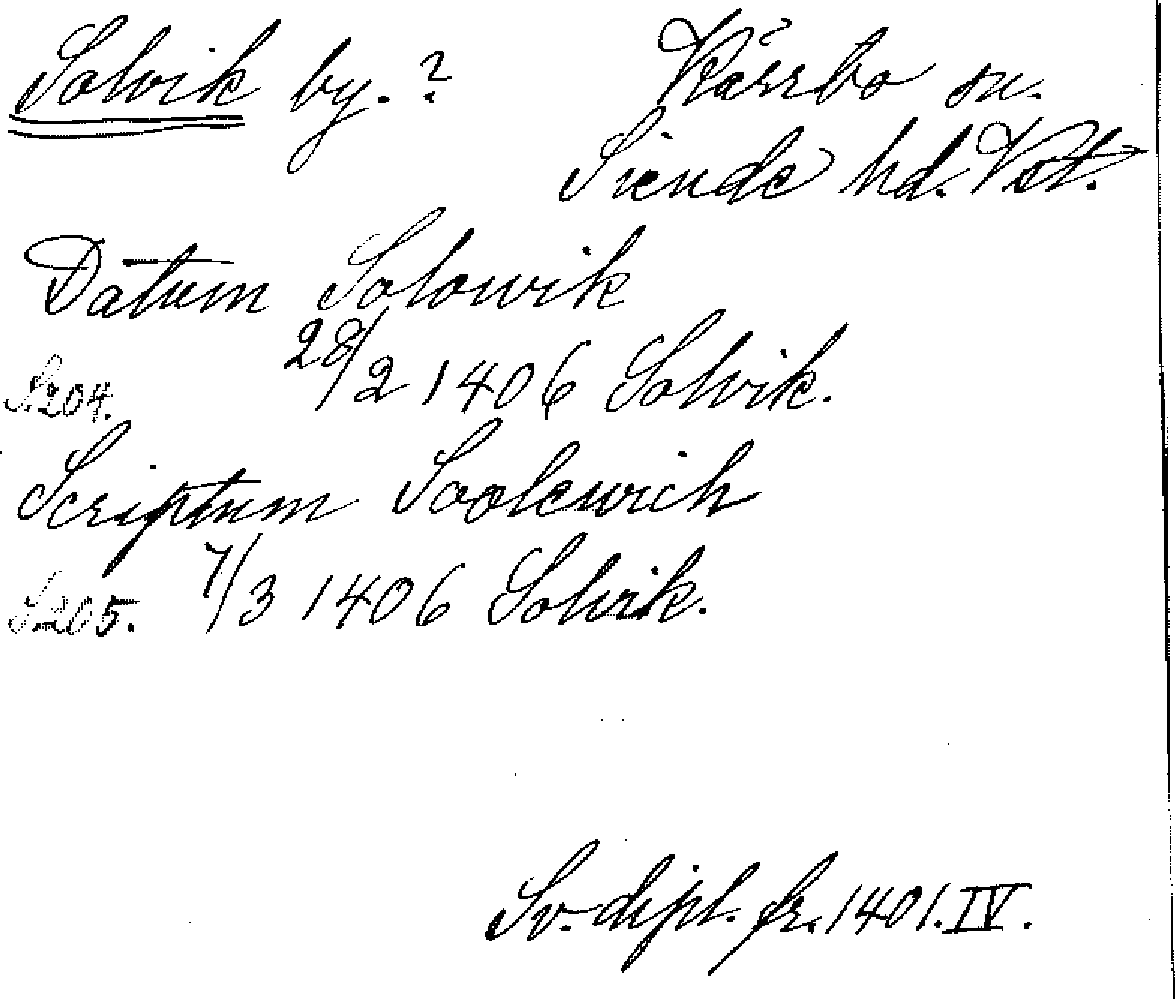 Solvik by. ? Kärrbo sn.
Siende hd. Vst.
Datum Solowik
S. 204. 28/2 1406 Solvik.
Scriptum Soolewich
S. 205. 7/3 1406 Solvik.
Sv. dipl. fr. 1401. IV.